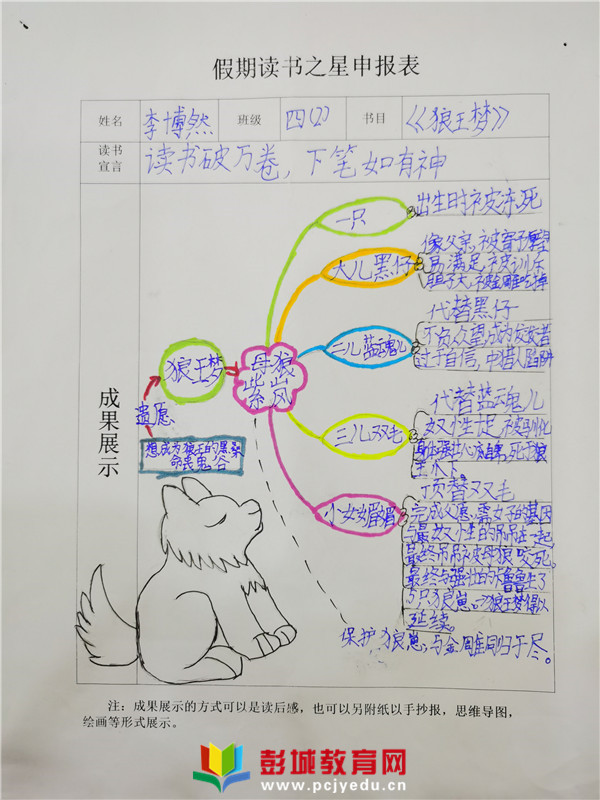 假期读书之星申报表
姓名 李博然 班级 四(2) 书目 《狼王梦》
读书宣言 读书破万卷，下笔如有神
成果展示
一只 出生时被冻死
大儿黑仔 像父亲,被寄予厚望
易满足,被训斥
胆子大,被金雕吃掉
二儿蓝魂儿 代替黑仔
不负众望成为佼佼者
过于自信,中猎人陷阱
狼王梦
母狼
紫岚
遗愿
想成为狼王的黑桑
命丧鬼谷
三儿双毛 代替蓝魂儿
奴性足,被驯化
小女媚媚 顶替双毛
完成父愿:需女子的基因
与最奴性的吊吊在一起
最终吊吊被母狼咬死。
最终与强壮的
5只狼崽。狼王梦得以
延续。
保护狼崽,与金雕同归于尽。
注：成果展示的方式可以是读后感，也可以另附纸以手抄报，思维导图，
绘画等形式展示。
彭城教育网
www.pcjyedu.cn